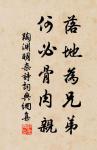 落地為兄弟
何必骨肉親
陶淵明杂诗詞典網集